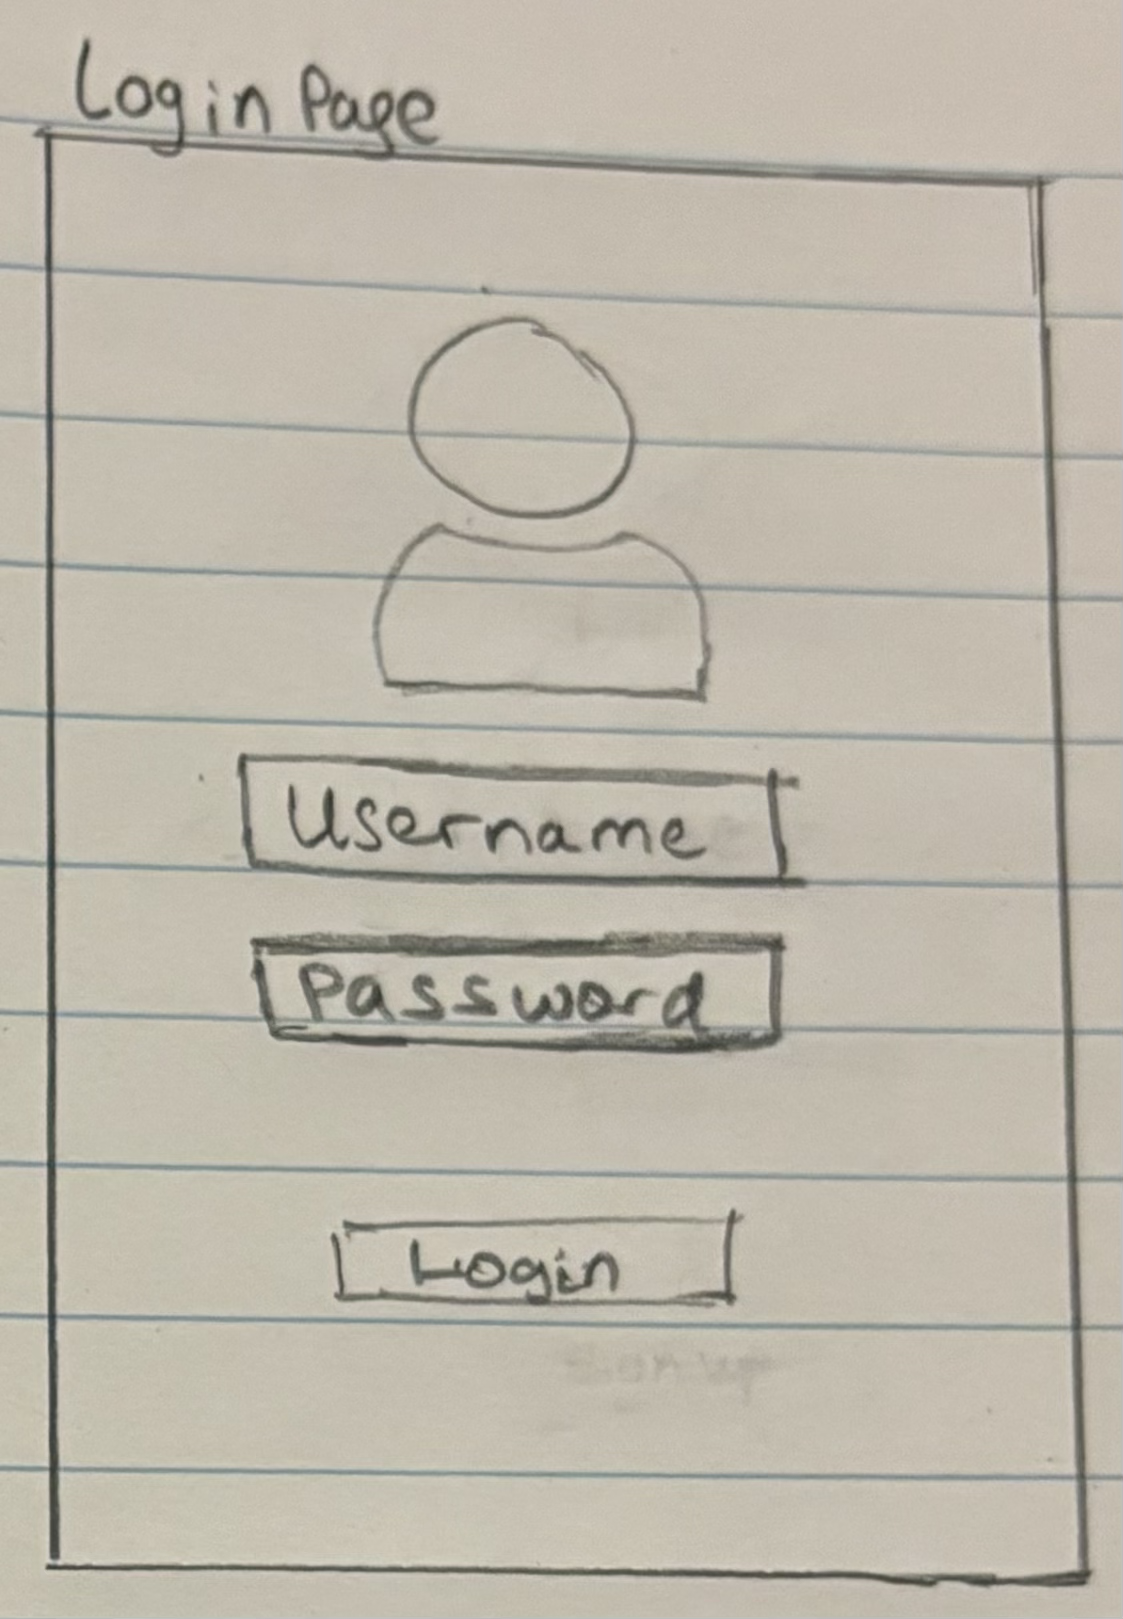 Login Page
Username
Password
Login